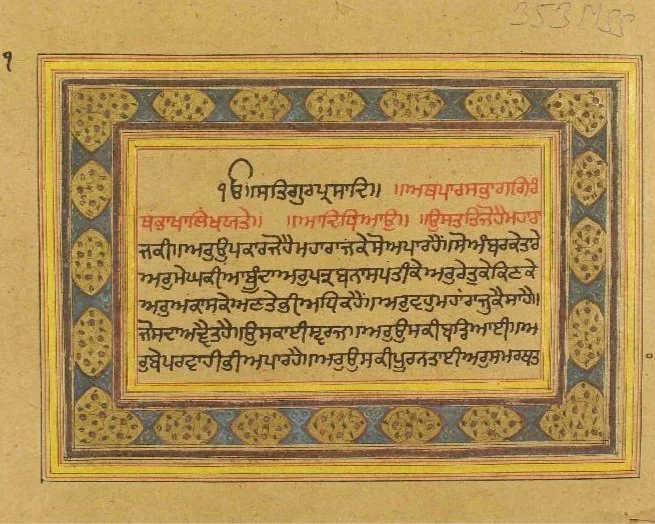 353 MSS
੧
ੴ ਸਤਿਗੁਰਪ੍ਰਸਾਦਿ॥ ॥ਅਥਪਾਰਸਭਾਗਗਿਰੰ
ਥਭਾਖਾਲਿਖਯਤੇ॥ ॥ਆਦਿਧਿਆਉ॥ ॥ਉਸਤਤਿਜੋਹੈਮਹਾਰਾ
ਜਕੀ॥ਅਰੁਉਪਕਾਰਜੋਹੈਮਹਾਰਾਜਕੇਸੋਅਪਾਰਹੈਂ॥ਸੋਅੰਬਰਕੇਤਾਰੇ
ਅਰੁਮੇਘਕੀਆਬੂੰਦਾਅਰੁਪਤ੍ਰਬਨਾਸਪਤੀਕੇਅਰੁਰੇਤੁਕੇਕਿਣਕੇ
ਅਰੁਅਕਾਸਕੇਅਣਤੇਭੀਅਧਿਕਹੈਂ॥ਅਰੁਵਹੁਮਹਾਰਾਜੁਕੈਸਾਹੈ॥
ਜੋਸਦਾਅਦ੍ਵੈਤਹੈ॥ਉਸਕਾਈਸ੍ਵਰਜ॥ਅਰੁਉਸਕੀਬਡਿਆਈ॥ਅ
ਰੁਬੇਪਰਵਾਹੀਭੀਅਪਾਰਹੈ॥ਅਰੁਉਸਕੀਪੂਰਨਤਾਈਅਰੁਸਮਰਥਤ